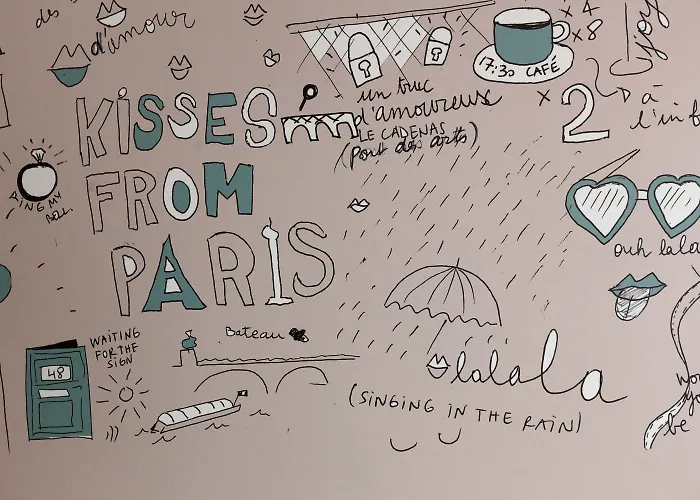 des
d'amour
x 4
x 8
joy
17:30 CAFÉ
KiSSES
FROM
PARiS
un truc
d'amoureux
LE CADENAS
(Pont des arts)
x 2
à
l'inf
RING MY
BELL.
ouh lala
WAITING
FOR THE
SIGN
48
Bateau
olalala
(SINGING IN THE RAIN)
wo
yo
be